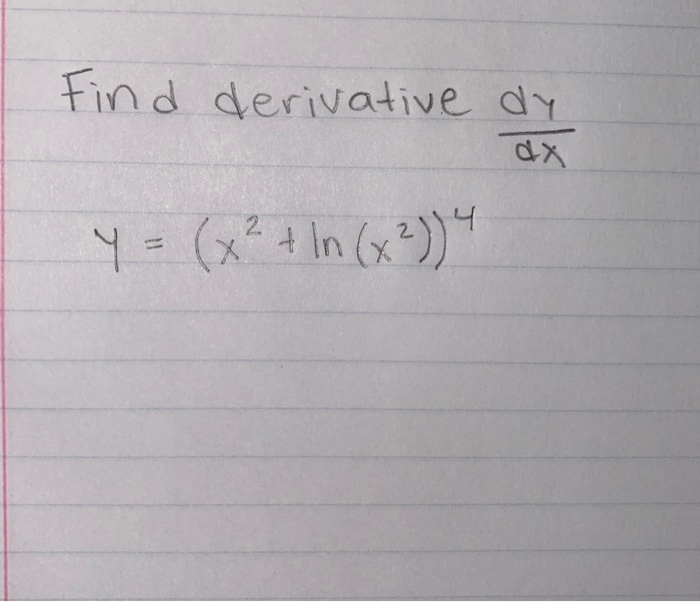 Find derivative dy/dx
y = (x² + ln(x²))⁴